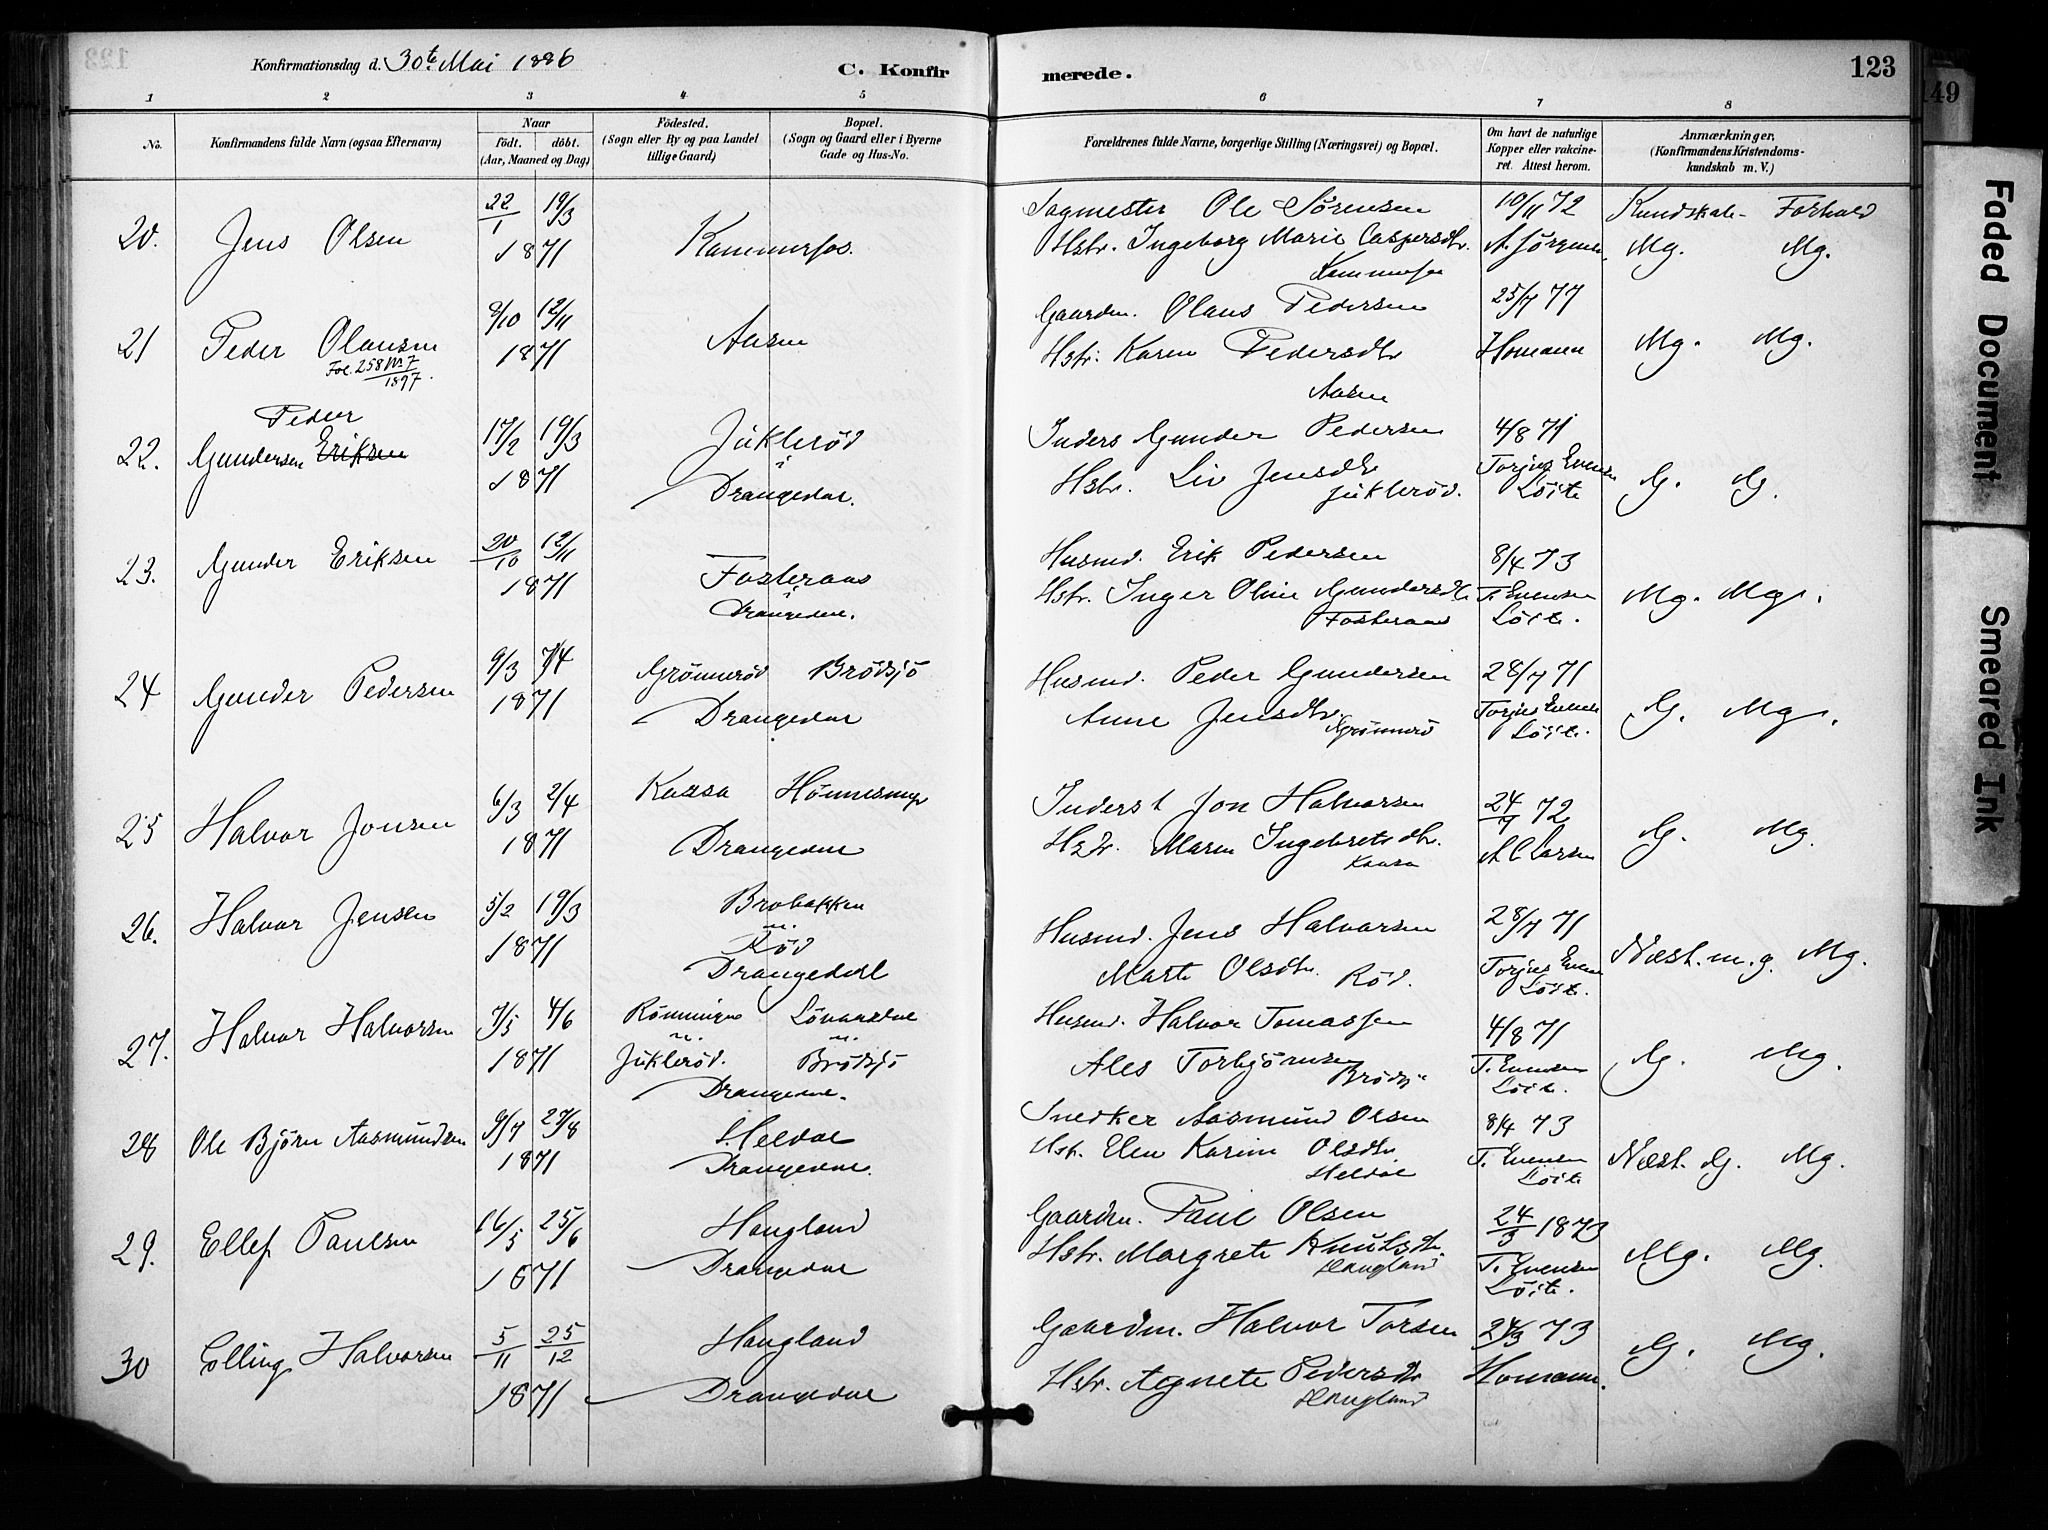 Konfirmationsdag d. 30te Mai 1886
C. Konfir
merede.
123
149
1 2 3 4 5 6 7 8
No.
Konfirmandens fulde Navn (ogsaa Efternavn)
Naar
født. døbt.
(Aar, Maaned og Dag)
Fødested.
(Sogn eller By og paa Landet
tillige Gaard)
Bopæl.
(Sogn og Gaard eller i Byerne
Gade og Hus-No.
Forældrenes fulde Navne, borgerlige Stilling (Næringsvei) og Bopæl.
Om havt de naturlige
Kopper eller vakcine-
ret. Attest herom.
Anmærkninger,
(Konfirmandens Kristendoms-
kundskab m. V.)
20. Jens Olsen 22/1 19/3 1871 Kammerfos.
Sagmester Ole Sørensen 10/11 72 Kundskab- Forhold
Hstr. Ingeborg Marie Caspersdtr. Mg. Mg.
21 Peder Olausen 8/10 12/11 1871 Aasen
Fol. 258 No 7
1897.
Gaardm. Olaus Pedersen 25/7 77
Hstr. Karen Pedersdtr Homann Mg. Mg.
Aasen
Peder
22. Gundersen Eriksen 17/2 19/3 1871 Juklerød
i
Drangedal.
Inders Gunder Pedersen 4/8 71
Hstr. Liv Jensdtr Torjus Evensen G. G.
Juklerød. Løite
23. Gunder Eriksen 20/10 12/11 1871 Fosteraas
i
Drangedal.
Husmd. Erik Pedersen 8/4 73
Hstr. Inger Oline Gundersdtr T. Evensen Mg. Mg.
Fosteraas Løite.
24 Gunder Pedersen 9/3 7/4 1871 Grønnerød Brødsjø
Drangedal
Husmd. Peder Gundersen 28/7 71
Anne Jensdtr. Torjus Evens G. Mg.
Grønnerø Løite.
25 Halvor Jonsen 6/3 2/4 1871 Kaasa
Drangedal
Inderst Jon Halvorsen 24/7 72
Hstr. Maren Ingebretsdtr. A C Larsen G. Mg.
Kaasa
26. Halvor Jensen 5/2 19/3 1871 Brobakken
u.
Rød
Drangedal
Husmd. Jens Halvorsen 28/7 71
Marte Olsdtr. Rød. Torjus Evens Næst. m. g. Mg.
Løite.
27. Halvor Halvorsen 7/5 4/6 1871 Rønningen Løvaasdal
u. u.
Juklerød. Brødsjø
Drangedal.
Husmd. Halvor Tomassen 4/8 71
Ales Torbjørnsen T. Evensen G. Mg.
Brødsjø Løite.
28 Ole Bjørn Aasmundsen 9/7 27/8 1871 Heldal
Drangedal.
Snedker Aasmund Olsen 8/4 73
Hstr. Elen Karine Olsdtr. T. Evensen Næst. G. Mg.
Heldal Løite
29. Ellef Paulsen 16/5 25/6 1871 Haugland
Drangedal
Gaardm. Paul Olsen 24/3 1873
Hstr. Margrete Knutsdtr. T. Evensen Mg. Mg.
Haugland Løite.
30 Elling Halvorsen 5/11 25/12 1871 Haugland
Drangedal
Gaardm. Halvor Torsen 24/3 73
Hstr. Agnete Pedersdtr Homann. G. Mg.
Haugland
Faded Document
Smeared Ink